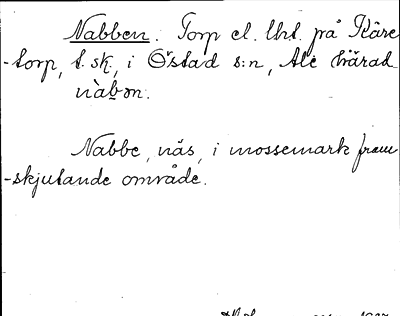 Nabben. Torp el. lht. på Kåre
-torp, f. sk, i Östad s:n, Ale härad
nàb̬ən.
Nabbe, näs, i mossemark fram
-skjutande område.